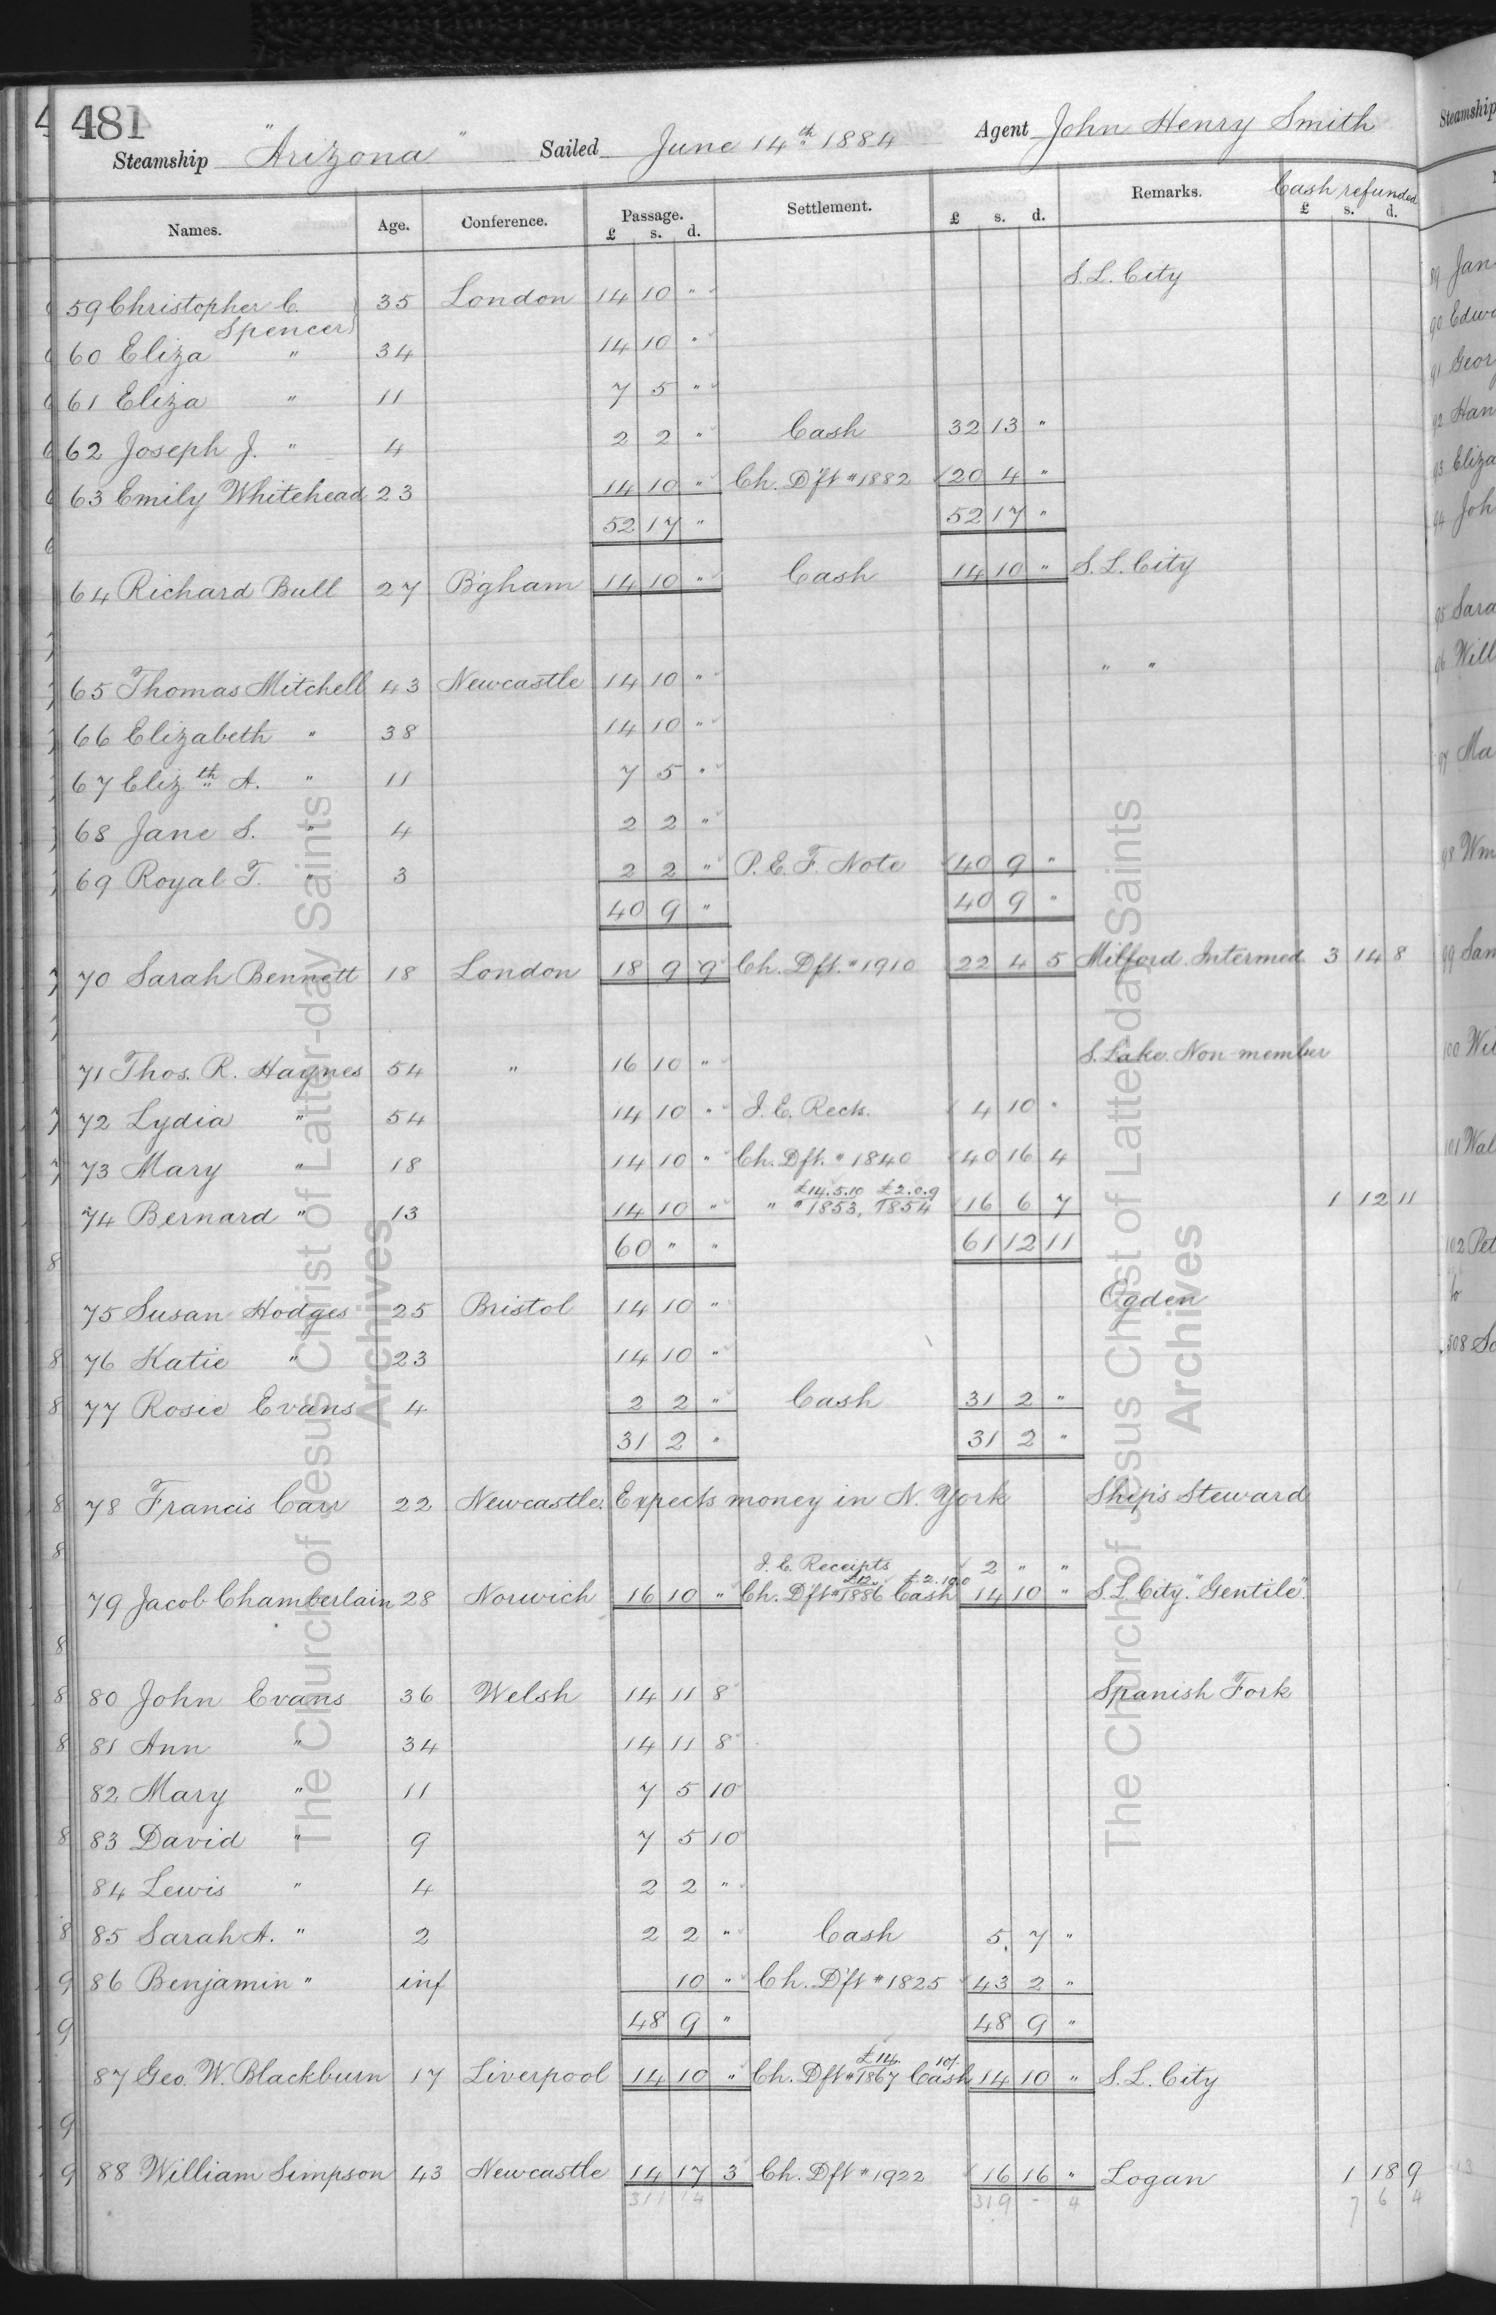 481
Steamship "Arizona" Sailed June 14th 1884 Agent John Henry Smith
Names. Age. Conference. Passage. £ s. d. Settlement. £ s. d. Remarks. Cash refunded £ s. d.
59 Christopher C. Spencer 35 London 14 10 " S. L. City
60 Eliza " 34 14 10 "
61 Eliza " 11 7 5 "
62 Joseph J. " 4 2 2 " Cash 32 13 "
63 Emily Whitehead 23 14 10 " Ch. D'ft # 1882 20 4 "
52 17 " 52 17 "
64 Richard Bull 27 B'gham 14 10 " Cash 14 10 " S. L. City
65 Thomas Mitchell 43 Newcastle 14 10 " " "
66 Elizabeth " 38 14 10 "
67 Elizth A. " 11 7 5 "
68 Jane S. " 4 2 2 "
69 Royal T. " 3 2 2 " P. E. F. Note 40 9 "
40 9 " 40 9 "
70 Sarah Bennett 18 London 18 9 9 Ch. Dft. # 1910 22 4 5 Milford Intermed 3 14 8
71 Thos. R. Haynes 54 " 16 10 " S. Lake. Non-member
72 Lydia " 54 14 10 " I. E. Rects. 4 10 "
73 Mary " 18 14 10 " Ch. Dft. # 1840 40 16 4
£14.5.10 £2.0.9
74 Bernard " 13 14 10 " " # 1853, 1854 16 6 7 1 12 11
60 " " 61 12 11
75 Susan Hodges 25 Bristol 14 10 " Ogden
76 Katie " 23 14 10 "
77 Rosie Evans 4 2 2 " Cash 31 2 "
31 2 " 31 2 "
78 Francis Carr 22 Newcastle Expects money in N. York Ship's Steward
I. E. Receipts 2 " "
£12. £2.10.0
79 Jacob Chamberlain 28 Norwich 16 10 " Ch. D'ft # 1886 Cash 14 10 " S. L. City. "Gentile".
80 John Evans 36 Welsh 14 11 8 Spanish Fork
81 Ann " 34 14 11 8
82 Mary " 11 7 5 10
83 David " 9 7 5 10
84 Lewis " 4 2 2 "
85 Sarah A. " 2 2 2 " Cash 5 7 "
86 Benjamin " inf 10 " Ch. D'ft # 1825 43 2 "
48 9 " 48 9 "
£14. 10/.
87 Geo. W. Blackburn 17 Liverpool 14 10 " Ch. Dft # 1867 Cash 14 10 " S. L. City
88 William Simpson 43 Newcastle 14 17 3 Ch. Dft # 1922 16 16 " Logan 1 18 9
311 14 319 - 4 7 6 4
The Church of Jesus Christ of Latter-day Saints
Archives
The Church of Jesus Christ of Latter-day Saints
Archives
Steamship
89 Jan
90 Edw
91 Geor
92 Han
93 Eliza
94 Joh
95 Sara
96 Will
97 Ma
98 Wm
99 Sam
100 Wil
101 Wal
102 Pet
to